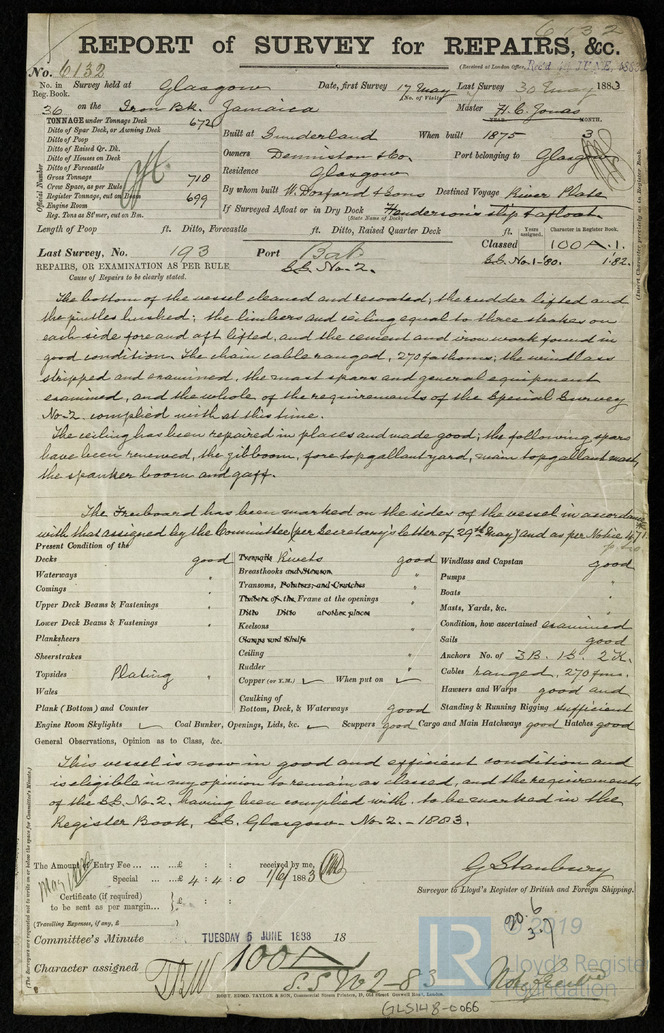 6132
REPORT of SURVEY for REPAIRS, &c.
(Received at London Office,
No. 6132
No. in Reg. Book. Survey held at Glasgow Date, first Survey 17 May Last Survey 30 May 1883
(No. of Visits
36 on the Iron Bk. Jamaica Master H. C. Jonas
TONNAGE under Tonnage Deck 672
YEAR. MONTH.
Ditto of Spar Deck, or Awning Deck
Built at Sunderland When built 1875 3
Ditto of Poop
Ditto of Raised Qr. Dk.
Owners Denniston & Co. Port belonging to Glasgow
Ditto of Houses on Deck
Ditto of Forecastle
Residence Glasgow
Gross Tonnage 718
Crew Space, as per Rule
By whom built W. Doxford & Sons Destined Voyage River Plate
Register Tonnage, cut on Beam 699
Engine Room
If Surveyed Afloat or in Dry Dock Henderson's slip & afloat
(State Name of Dock)
Reg. Tons as St'mer, cut on Bm.
Official Number
Length of Poop ft. Ditto, Forecastle ft. Ditto, Raised Quarter Deck ft.
Years assigned. Character in Register Book.
Last Survey, No. 193 Port Classed 100A.1.
S.S. No. 2. S.S. No. 1-80. 1.82.
REPAIRS, OR EXAMINATION AS PER RULE
Cause of Repairs to be clearly stated.
The bottom of the vessel cleaned and recoated; the rudder lifted and
the pintles bushed; the limbers and ceiling equal to three strakes on
each side fore and aft lifted, and the cement and iron work found in
good condition. The chain cable ranged, 270 fathoms; the windlass
stripped and examined, the mast spars and general equipment
examined, and the whole of the requirements of the Special Survey
No. 2. complied with at this time.
The ceiling has been repaired in places and made good; the following spars
have been renewed, the jibboom, fore topgallant yard, main topgallant mast,
the spanker boom and gaff.
The Freeboard has been marked on the sides of the vessel in accordance
with that assigned by the Committee (per Secretary's letter of 29th May) and as per Notice 471
Present Condition of the
Decks good Treenails Rivets good Windlass and Capstan good
Waterways " Breasthooks and Stemson " Pumps "
Comings " Transoms, Pointers, and Crutches " Boats "
Upper Deck Beams & Fastenings " Timbers of the Frame at the openings " Masts, Yards, &c. "
Ditto Ditto at other places
Lower Deck Beams & Fastenings " Keelsons " Condition, how ascertained examined
Planksheers Clamps and Shelfs Sails good
Sheerstrakes " Ceiling " Anchors No. of 3B. 1S. 2K.
Topsides Plating " Rudder " Cables ranged, 270 fms.
Wales Copper (or Y.M.) ✓ When put on ✓ Hawsers and Warps good and
Plank (Bottom) and Counter Caulking of Bottom, Deck, & Waterways good Standing & Running Rigging sufficient
Engine Room Skylights ✓ Coal Bunker, Openings, Lids, &c. ✓ Scuppers good Cargo and Main Hatchways good Hatches good
General Observations, Opinion as to Class, &c.
This vessel is now in good and efficient condition and
is eligible in my opinion to remain as classed, and the requirements
of the S.S. No. 2, having been complied with. to be marked in the
Register Book, S.S. Glasgow - No. 2. - 1883.
The Amount of Entry Fee ... £ : : received by me,
Special ... £ 4 : 4 : 0 1/6/1883
Certificate (if required) to be sent as per margin... £ : :
(Travelling Expenses, if any, £ )
G Stanbury
Surveyor to Lloyd's Register of British and Foreign Shipping.
Committee's Minute TUESDAY 5 JUNE 1883 18
Character assigned 100A
S.S. No 2-83
ROBT. EDMD. TAYLOR & SON, Commercial Steam Printers, 19, Old Street Goswell Road, London.
GLS148-0066
LR © 2019
Lloyd's Register
Foundation